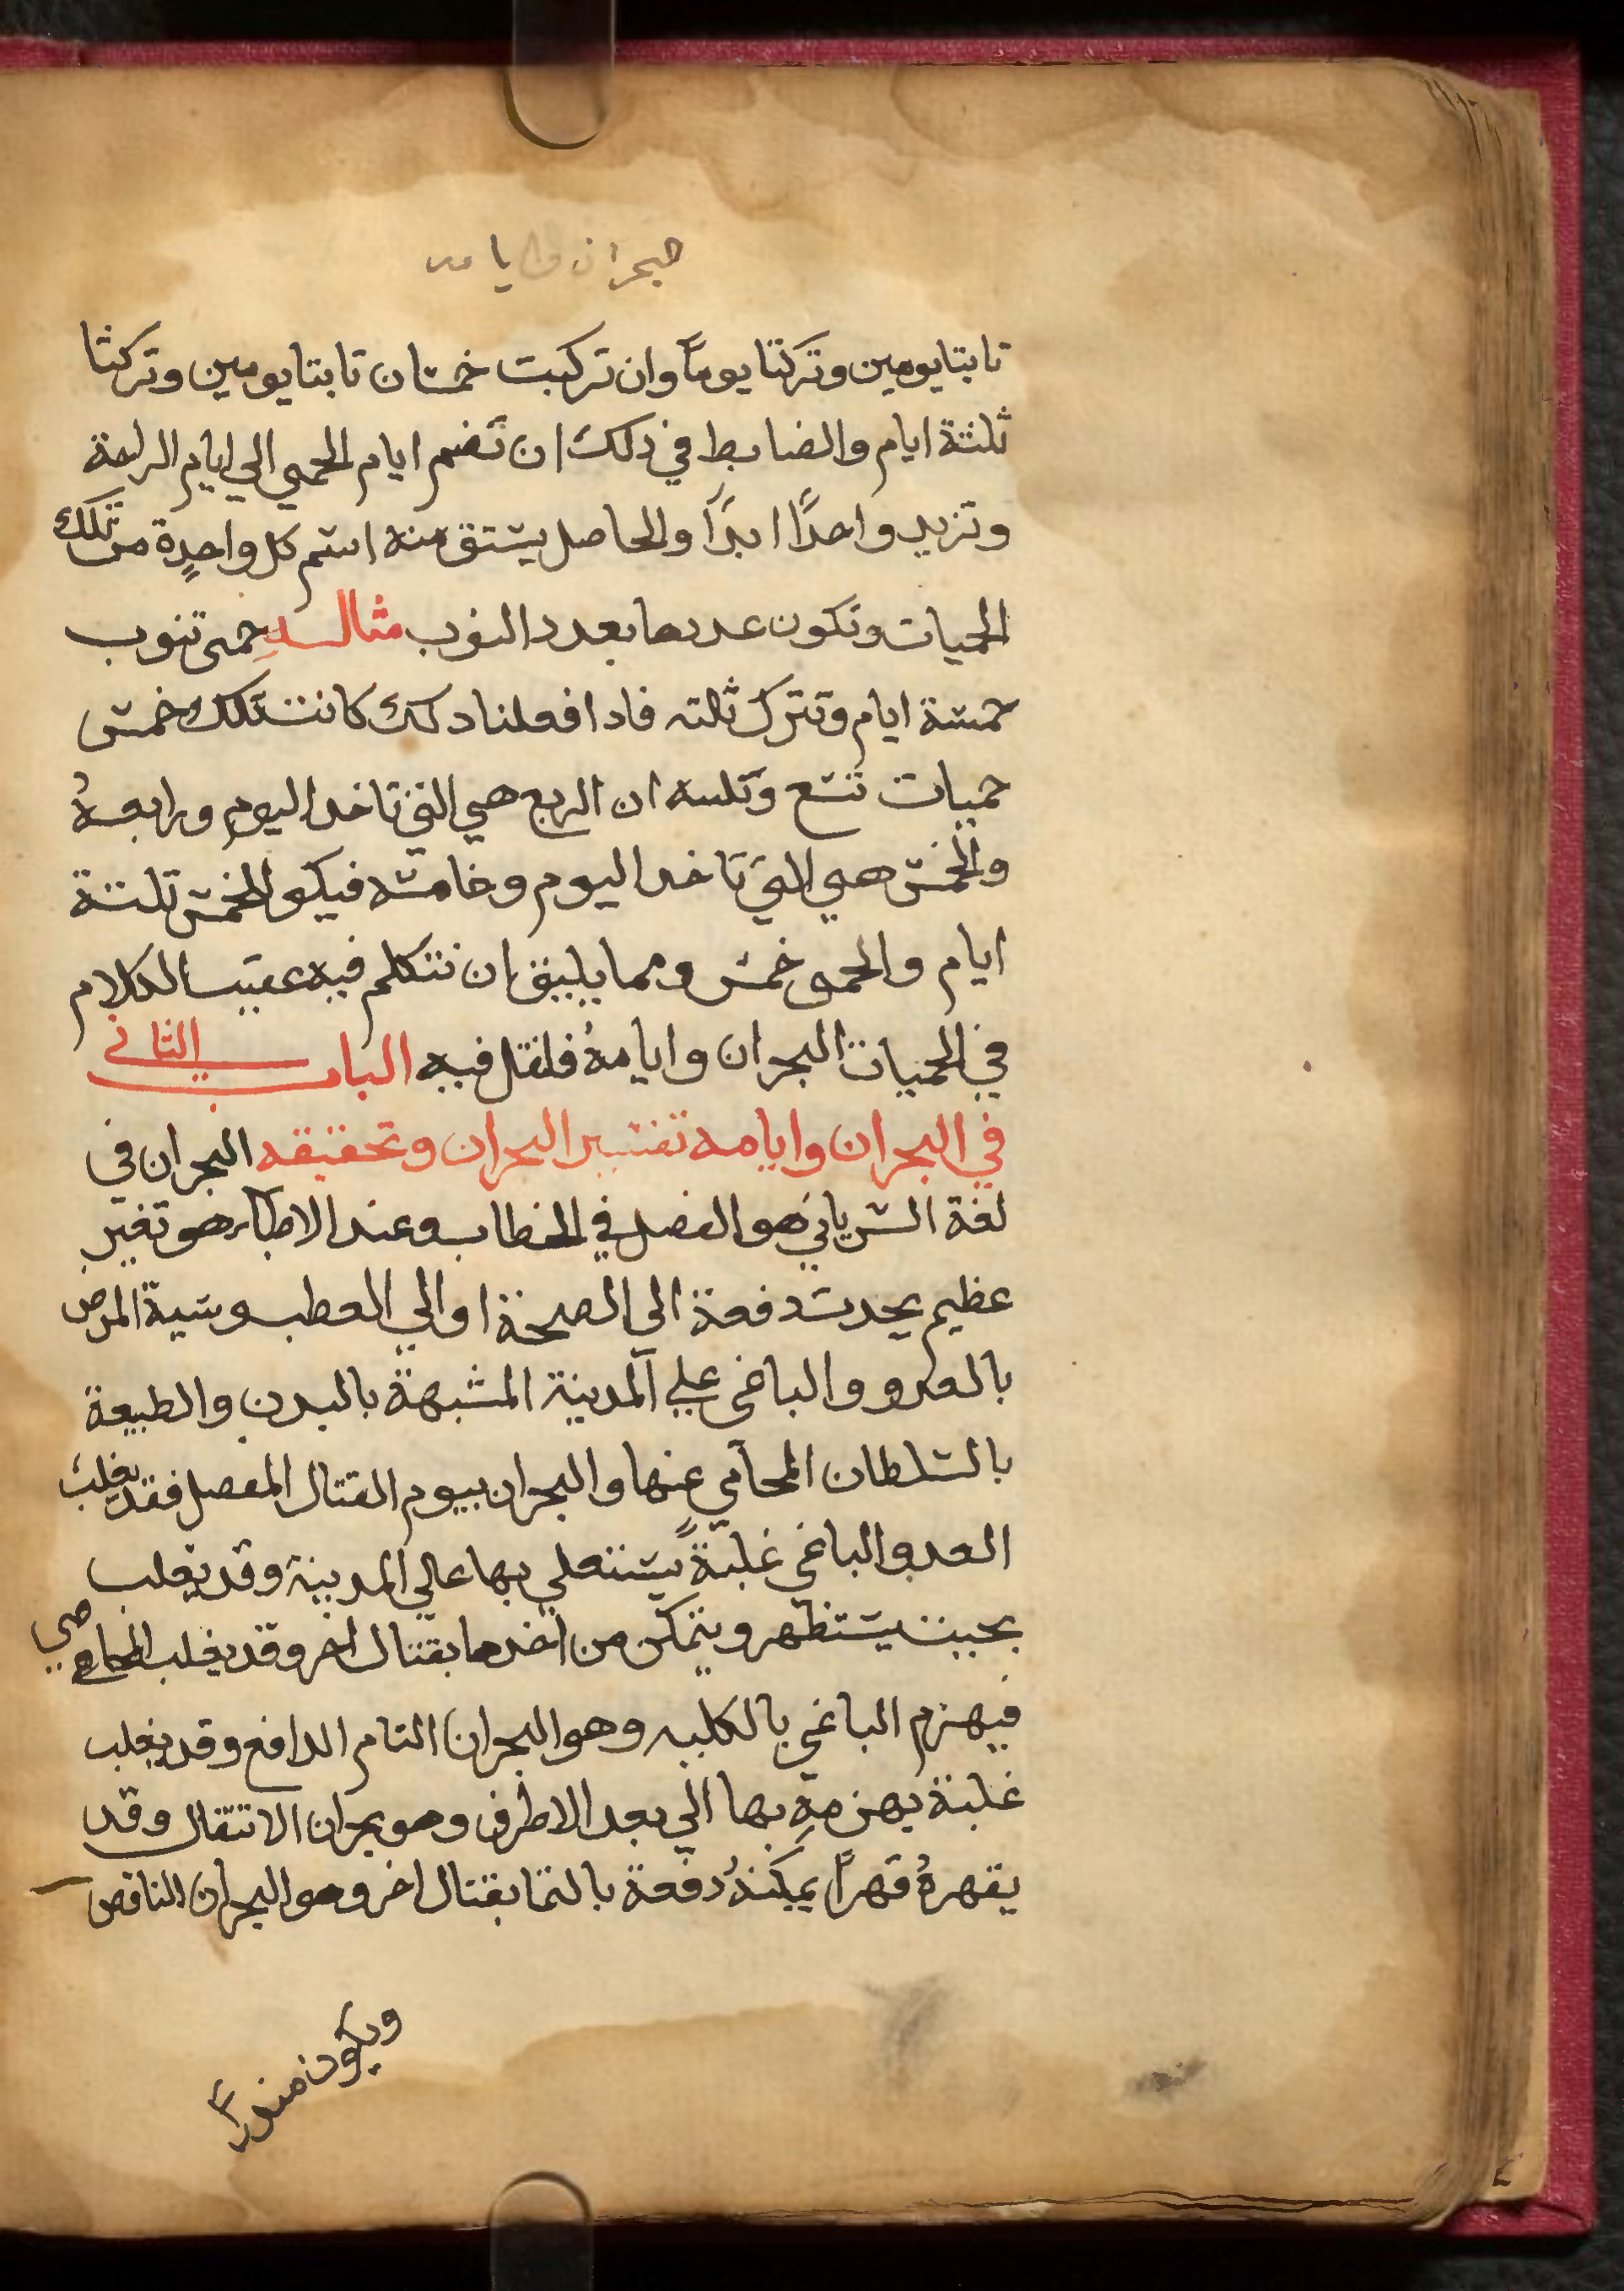 بحران وايامه
نابتا يومين وتركتا يوماً وان تركبت خمسان نابتا يومين وتركتا
ثلثة ايام والضابط في دلك ان تضم ايام الحمي الي ايام الراحة
وتزيد واحدًا ابدًا والحاصل يشتق منه اسم كل واحدٍة من تلك
الحميات وتكون عددها بعدد النوب مثاله حمى تنوب
خمسة ايام وتترك ثلثه فادا فعلنا دلك كانت تلك خمس
حميات تسع وثلثه ان الربع هي التي تاخد اليوم ورابعهُ
والخمس هي التي تاخد اليوم وخامسه فيكو الخمس ثلثة
ايام والحمى خمس ومما يليق ان نتكلم فيه عقيب الكلام
في الحميات البحران وايامهُ فلنقل فيه الباب الثاني
في البحران وايامه تفسير البحران وتحقيقه البحران في
لغة السرياني هو الفصل في الخطاب وعند الاطباء هو تغير
عظيم يحدث دفعة الى الصحة او الي العطب وشبة المرض
بالعدو والباغي علي المدينة المشبهة بالبدن والطبيعة
بالسلطان المحامي عنها والبحران بيوم القتال المفصل فقد يغلب
العدو الباغي غلبةً يستعلي بها علي المدينة وقد يغلب
بحيث يستظهر ويتمكن من اخدها بقتال اخر وقد يغلب المحامي
فيهزم الباغي بالكليه وهو البحران التام الدافع وقد يغلب
غلبة يهزمه بها الي بعد الاطراف وهو بحران الانتقال وقد
يقهرهُ قهراً يمكنهُ دفعة بالتما بقتال اخر وهو البحران الناقص
ويكون مندراً